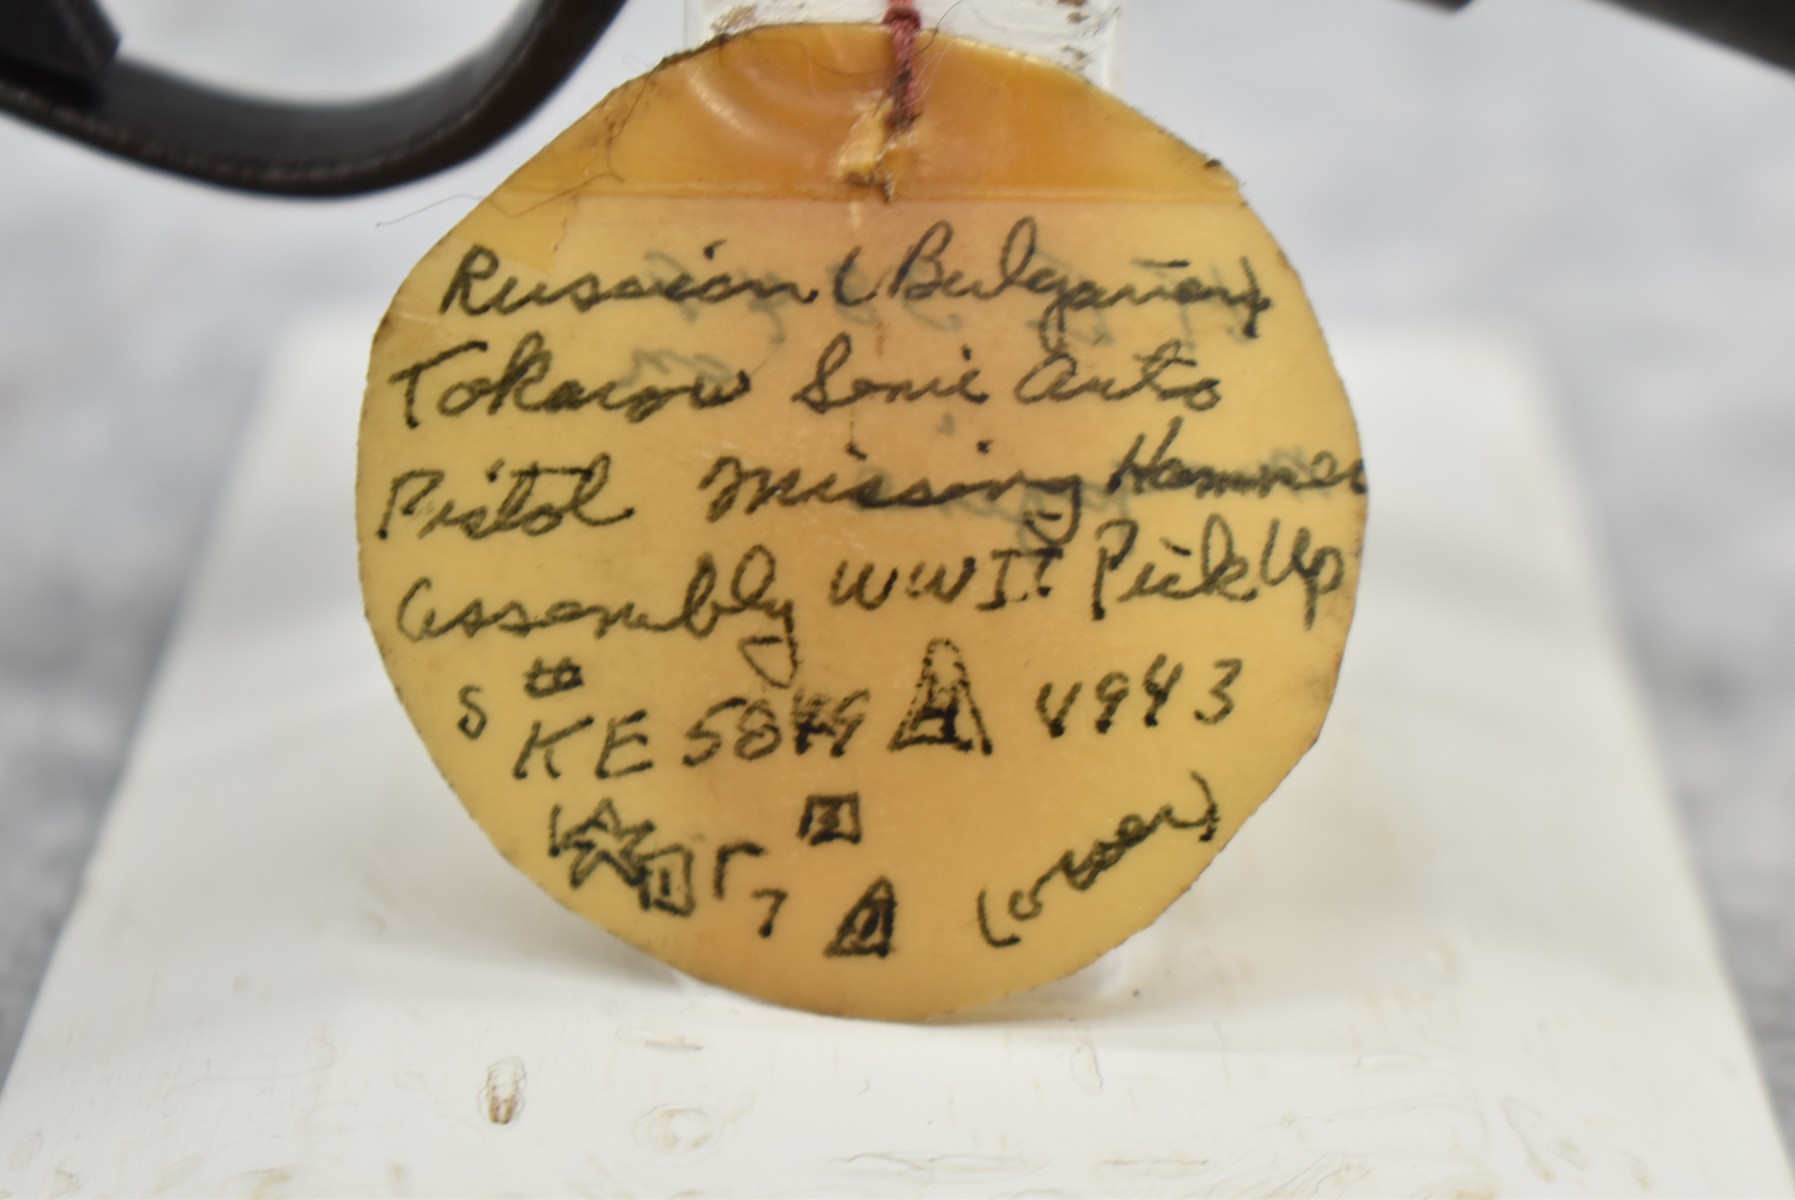 Russian (Bulgarian)
Tokarov Semi Auto
Pistol Missing Hammer
Assembly WWII PickUp
S # KE 58 1943
1 Г 2
7
(over)